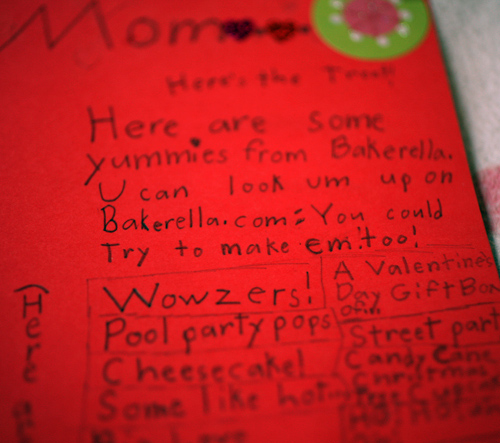 Mom
Here's the Treat!
Here are some
yummies from Bakerella.
U can look um up on
Bakerella.com: You could
Try to make em too!
Wowzers!
Pool party pops
Cheesecake!
Some like hot
A Valentine's
Day Gift Box
Street part
Candy Cane
Christmas
Here